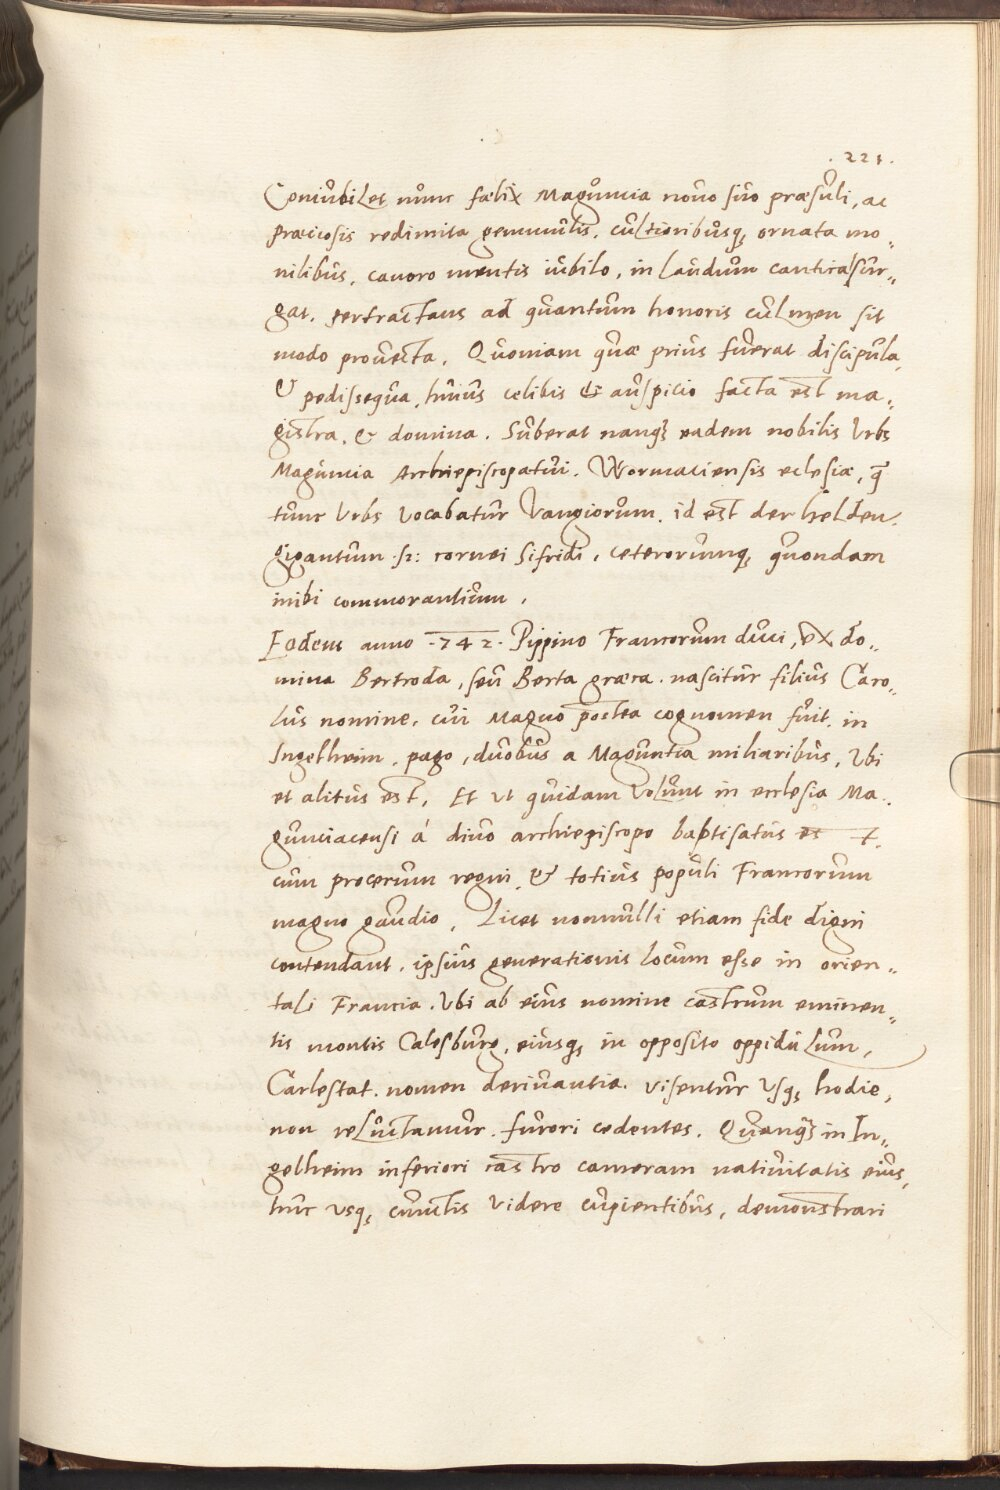 . 221 .
Coniubilet nunc fœlix Maguncia nouo suo præsuli, ac
præciosis redimita gemmulis, cultioribusq, ornata mo„
nilibus, canoro mentis iubilo, in laudum cantica sur„
gat. pertractans ad quantum honoris culmen sit
modo prouecta. Quoniam quæ prius fuerat discipula,
& pedissequa, huius celibis & auspicio facta est ma„
gistra, & domina. Suberat nanq, eadem nobilis Vrbs
Maguncia Archiepiscopatui. Wormaciensis eclesiæ, q̄
tunc Vrbs vocabatur Vangiorum. id est der helden.
gigantum .sz: cornei Sifridi, ceterorumq, quondam
inibi commorantium,
Eodem anno .742. Pippino Francorum duci, ex do„
mina Bertroda, seu Berta græca. nascitur filius Caro„
lus nomine, cui Magno postea cognomen fuit. in
Ingelheim, pago, duobus a Maguntia miliaribus, Vbi
et alitus est, Et vt quidam volunt in ecclesia Ma„
gunciacensi á diuo archiepiscopo baptisatus es t.
cum procerum regni, & totius populi Francorum
magno gaudio, Licet nonnulli etiam fide digni
contendant, ipsius generationis locum esse in orien„
tali Francia. Vbi ab eius nomine castrum eminen„
tis montis Calesburg, eiusq, in opposito oppidulum,
Carlestat. nomen deriuantia. visentur vsq, hodie,
non reluctamur. furori cedentes. Quanq̄ in In„
gelheim inferiori castro cameram natiuitatis eius,
huc vsq, cunctis videre cupientibus, demonstrari